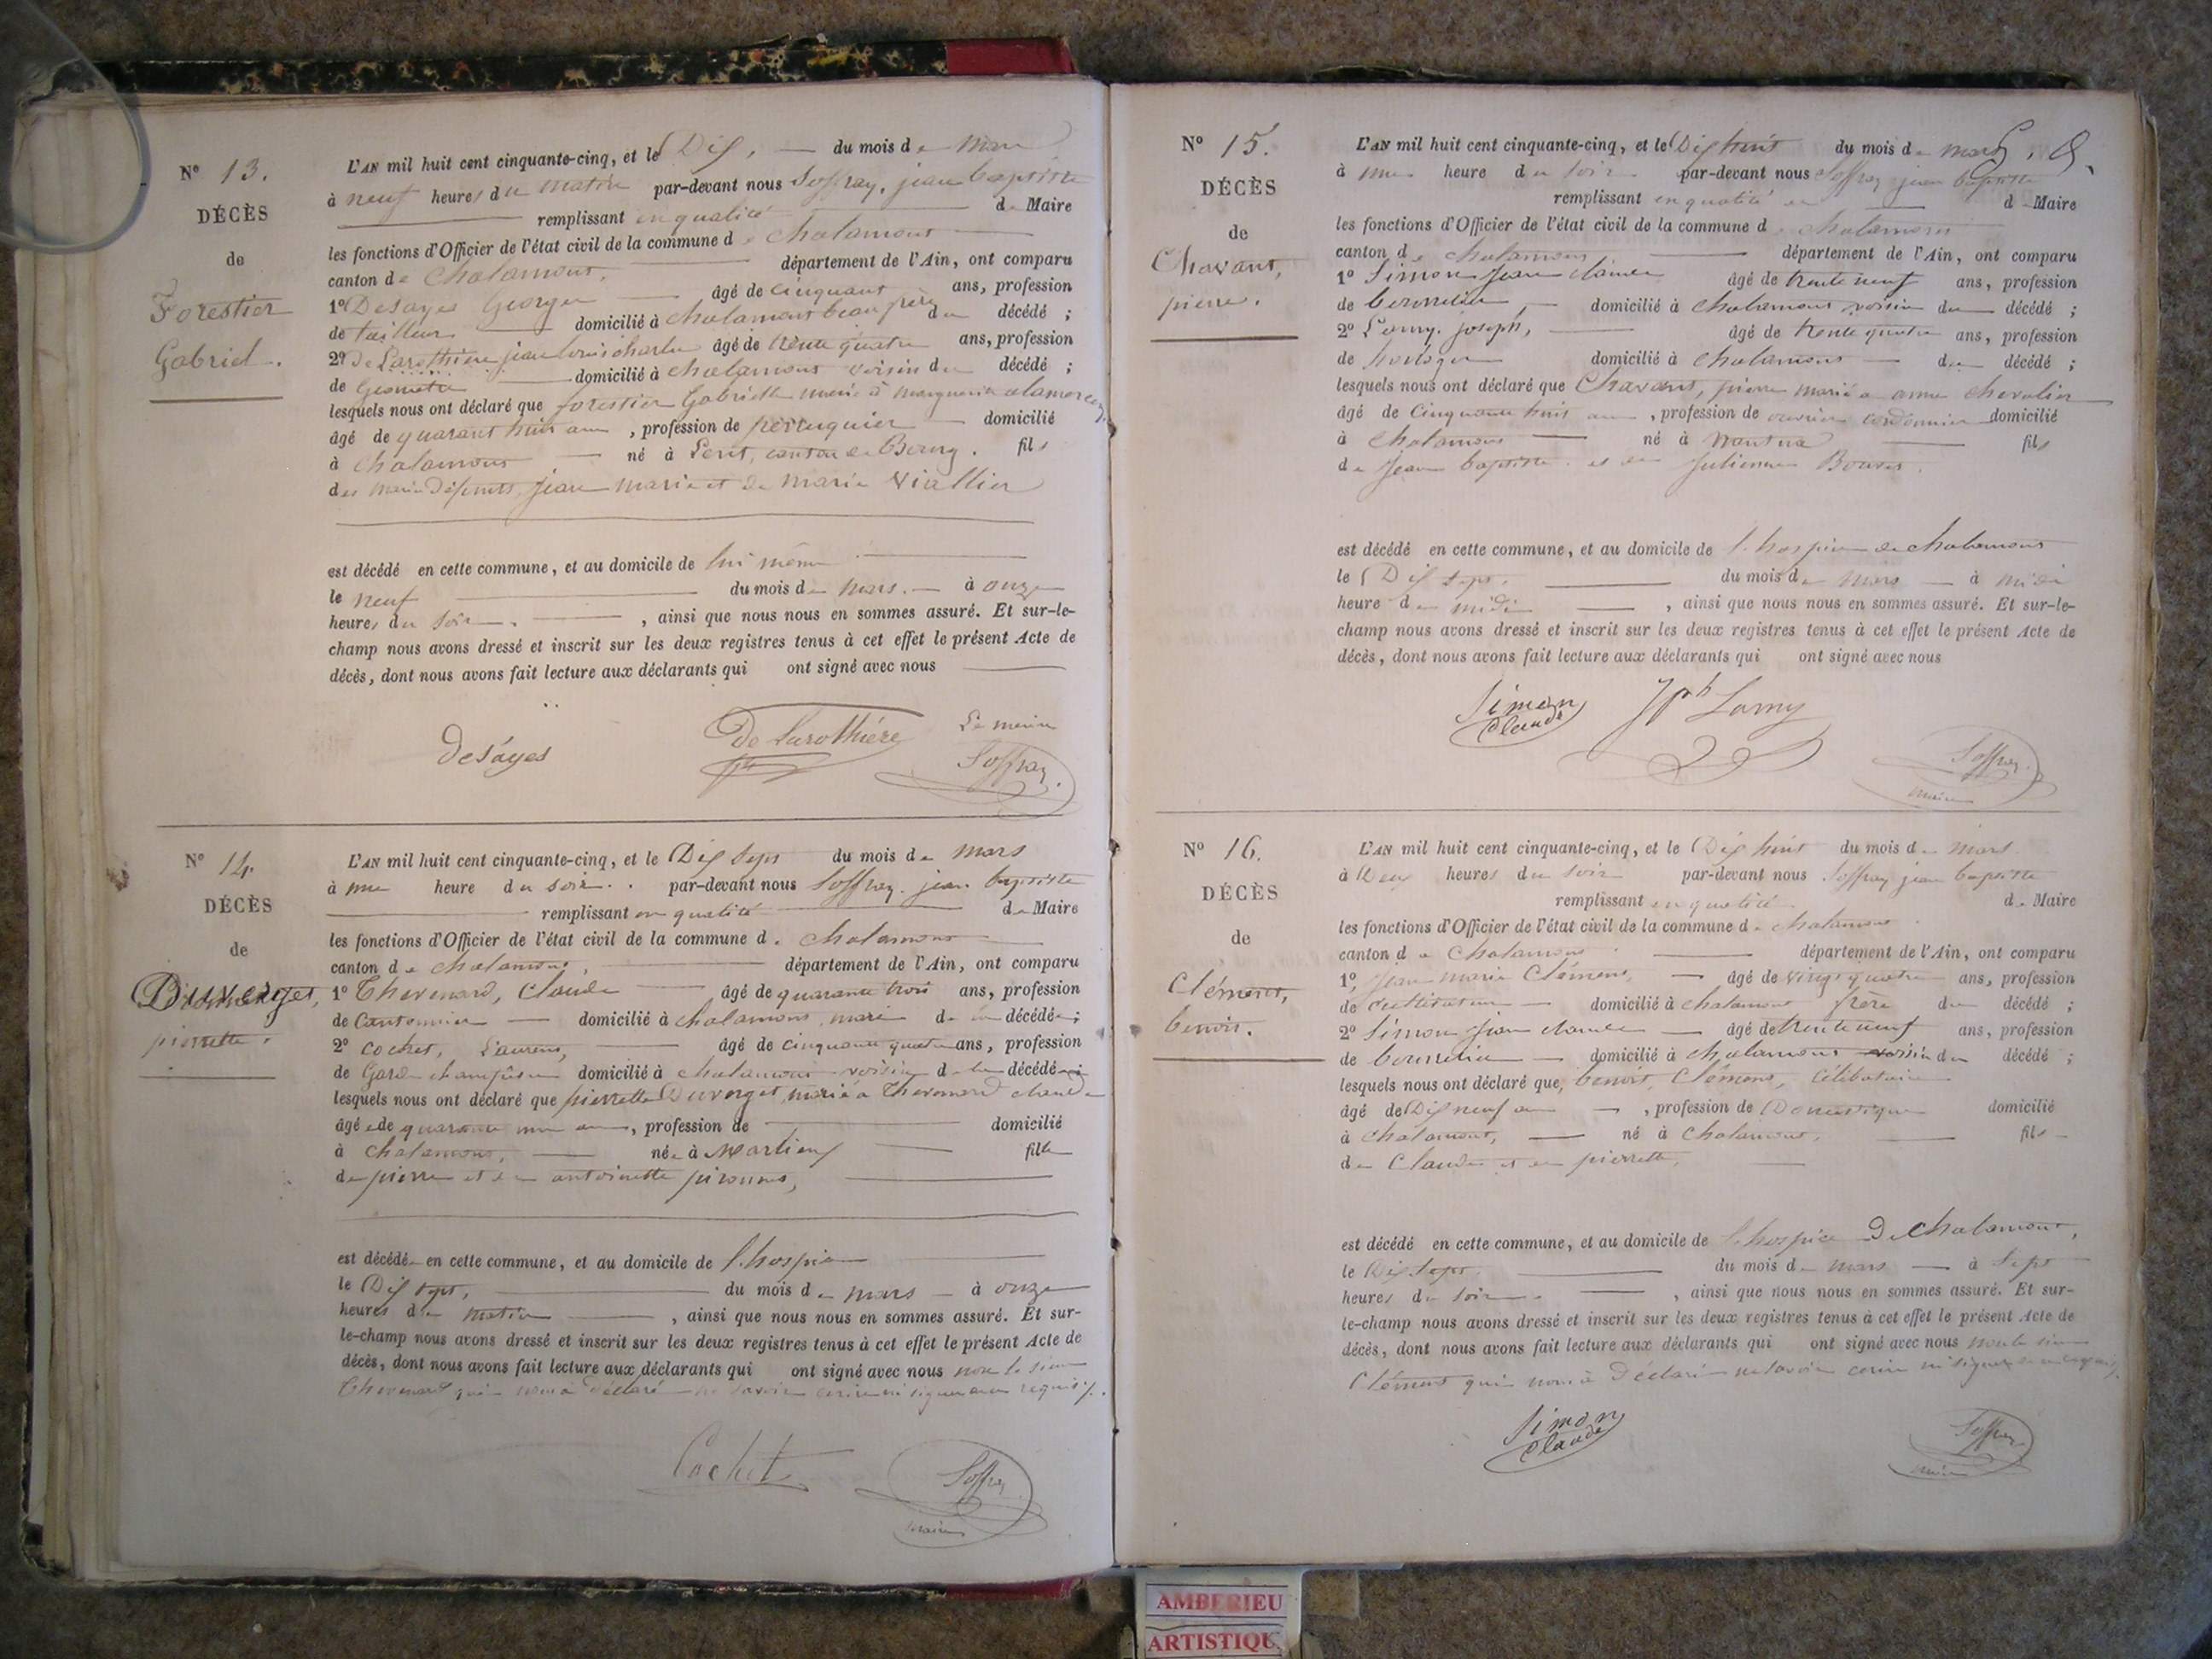 N° 13.
DÉCÈS
de
Forestier
Gabriel.
L'AN mil huit cent cinquante-cinq, et le Dix, du mois de Mars
à neuf heures du matin par-devant nous Soffray, jean baptiste
remplissant en qualité de Maire
les fonctions d'Officier de l'état civil de la commune de chalamont
canton de Chalamont, département de l'Ain, ont comparu
1° Desayes Georges âgé de cinquante ans, profession
de tailleur domicilié à chalamont beau frère du décédé ;
2° de Larothière jean louis charles âgé de trente quatre ans, profession
de Géomètre domicilié à chalamont voisin du décédé ;
lesquels nous ont déclaré que forestier Gabriel marié à marguerite
âgé de quarante huit ans, profession de perruquier domicilié
à chalamont né à Lent, canton de Bourg. fils
des mariés défunts, Jean marie et de marie Viallier
est décédé en cette commune, et au domicile de lui même
le neuf du mois de mars. à onze
heures du soir. , ainsi que nous nous en sommes assuré. Et sur-le-
champ nous avons dressé et inscrit sur les deux registres tenus à cet effet le présent Acte de
décès, dont nous avons fait lecture aux déclarants qui ont signé avec nous
desayes De Larothiére Le maire
Soffray.
N° 14.
DÉCÈS
de
Duverget,
pierrette.
L'AN mil huit cent cinquante-cinq, et le Dix sept du mois de mars
à une heure du soir. par-devant nous Soffray. jean baptiste
remplissant en qualité de Maire
les fonctions d'Officier de l'état civil de la commune de chalamont
canton de chalamont, département de l'Ain, ont comparu
1° Thevenard, Claude âgé de quarante trois ans, profession
de Cantonnier domicilié à chalamont, mari de la décédée ;
2° cochet, Laurent, âgé de cinquante quatre ans, profession
de Garde champêtre domicilié à chalamont voisin de la décédée
lesquels nous ont déclaré que pierrette Duverget, mariée à Thevenard claude
âgée de quarante un ans, profession de domicilié
à chalamont, née à Marlieux fille
de pierre et de antoinette
est décédée en cette commune, et au domicile de l'hospice
le Dix sept, du mois de mars à onze
heures du matin , ainsi que nous nous en sommes assuré. Et sur-
le-champ nous avons dressé et inscrit sur les deux registres tenus à cet effet le présent Acte de
décès, dont nous avons fait lecture aux déclarants qui ont signé avec nous non le sieur
Thevenard qui nous a déclaré ne savoir écrire ni signer de ce requis.
Cochet Soffray
maire
N° 15.
DÉCÈS
de
Chavant,
pierre.
L'AN mil huit cent cinquante-cinq, et le Dix huit du mois de mars
à une heure du soir par-devant nous Soffray jean baptiste
remplissant en qualité de Maire
les fonctions d'Officier de l'état civil de la commune de chalamont
canton de chalamont département de l'Ain, ont comparu
1° Simon Jean claude âgé de trente neuf ans, profession
de bourrelier domicilié à chalamont voisin du décédé ;
2° Lamy. joseph, âgé de trente quatre ans, profession
de horloger domicilié à chalamont du décédé ;
lesquels nous ont déclaré que Chavant, pierre marié à anne chevalier
âgé de cinquante huit ans, profession de ouvrier cordonnier domicilié
à Chalamont né à Nantua fils
de Jean baptiste et de Julienne
est décédé en cette commune, et au domicile de l'hospice de chalamont
le Dix sept. du mois de mars à midi
heure de midi , ainsi que nous nous en sommes assuré. Et sur-le-
champ nous avons dressé et inscrit sur les deux registres tenus à cet effet le présent Acte de
décès, dont nous avons fait lecture aux déclarants qui ont signé avec nous
Simon Jph Lamy
Claude
Soffray.
maire
N° 16.
DÉCÈS
de
Clément,
benoit.
L'AN mil huit cent cinquante-cinq, et le Dix huit du mois de mars
à Deux heures du soir par-devant nous Soffray jean baptiste
remplissant en qualité de Maire
les fonctions d'Officier de l'état civil de la commune de chalamont
canton de Chalamont département de l'Ain, ont comparu
1°, Jean marie Clément, âgé de vingt quatre ans, profession
de cultivateur domicilié à chalamont frère du décédé ;
2° Simon Jean claude âgé de trente neuf ans, profession
de bourrelier domicilié à chalamont voisin du décédé ;
lesquels nous ont déclaré que, benoit, Clément, célibataire
âgé de Dix neuf ans , profession de Domestique domicilié
à chalamont, né à Chalamont, fils
de Claude et de pierrette,
est décédé en cette commune, et au domicile de l'hospice De chalamont,
le Dix sept. du mois de mars à sept
heures du soir. , ainsi que nous nous en sommes assuré. Et sur-
le-champ nous avons dressé et inscrit sur les deux registres tenus à cet effet le présent Acte de
décès, dont nous avons fait lecture aux déclarants qui ont signé avec nous non le sieur
Clément qui nous à Déclaré ne savoir écrire ni signer de ce requis.
Simon
Claude
Soffray
maire
AMBERIEU
ARTISTIQU